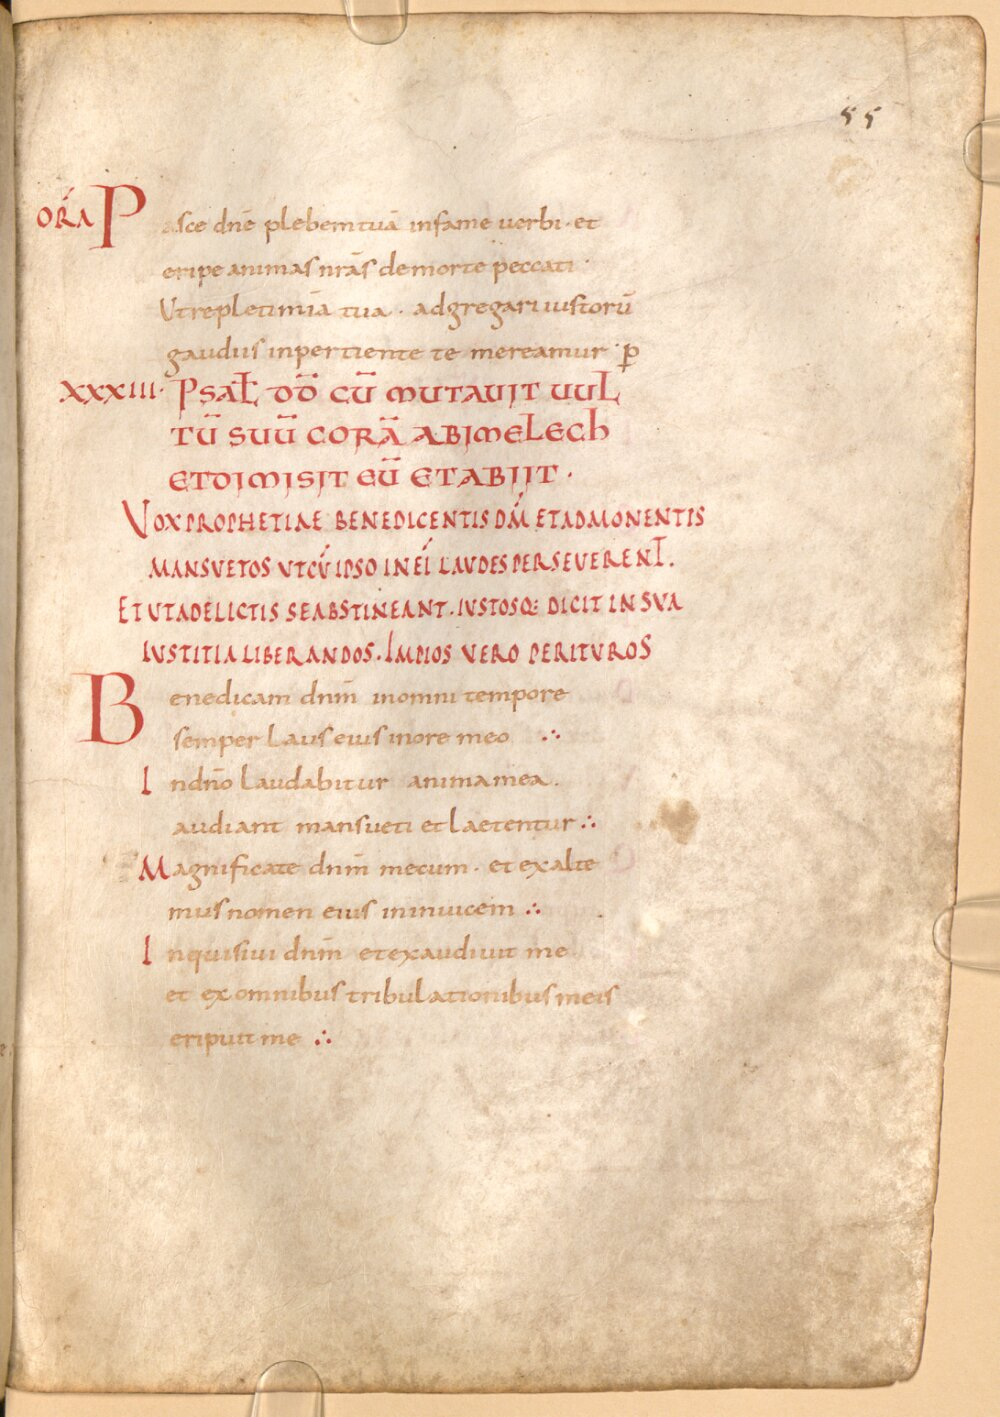 55
ORA Pasce dn̄e plebem tuā in fame verbi · et
eripe animas nr̄as de morte peccati ·
Ut repleti mīa tua · adgregari iustorū
gaudiis inpertiente te mereamur · p̄
XXXIII · PSAL̄ DD̄ CŪ MUTAUIT UUL
TŪ SUŪ CORĀ ABIMELECH
ET DIMISIT EŪ ET ABIIT ·
VOX PROPHETIAE BENEDICENTIS DM̄ ET ADMONENTIS
MANSVETOS VT CV̄ IPSO IN EĪ LAVDES PERSEVERENT̄.
ET VT A DELICTIS SE ABSTINEANT · IVSTOSQ: DICIT IN SVA
IVSTITIA LIBERANDOS · IMPIOS VERO PERITVROS
Benedicam dnm̄ in omni tempore
semper laus eius in ore meo ∴
In dn̄o laudabitur anima mea .
audiant mansueti et laetentur ∴
Magnificate dnm̄ mecum · et exalte
mus nomen eius in inuicem ∴
Inquisiui dnm̄ et exaudiuit me
et ex omnibus tribulationibus meis
eripuit me ∴